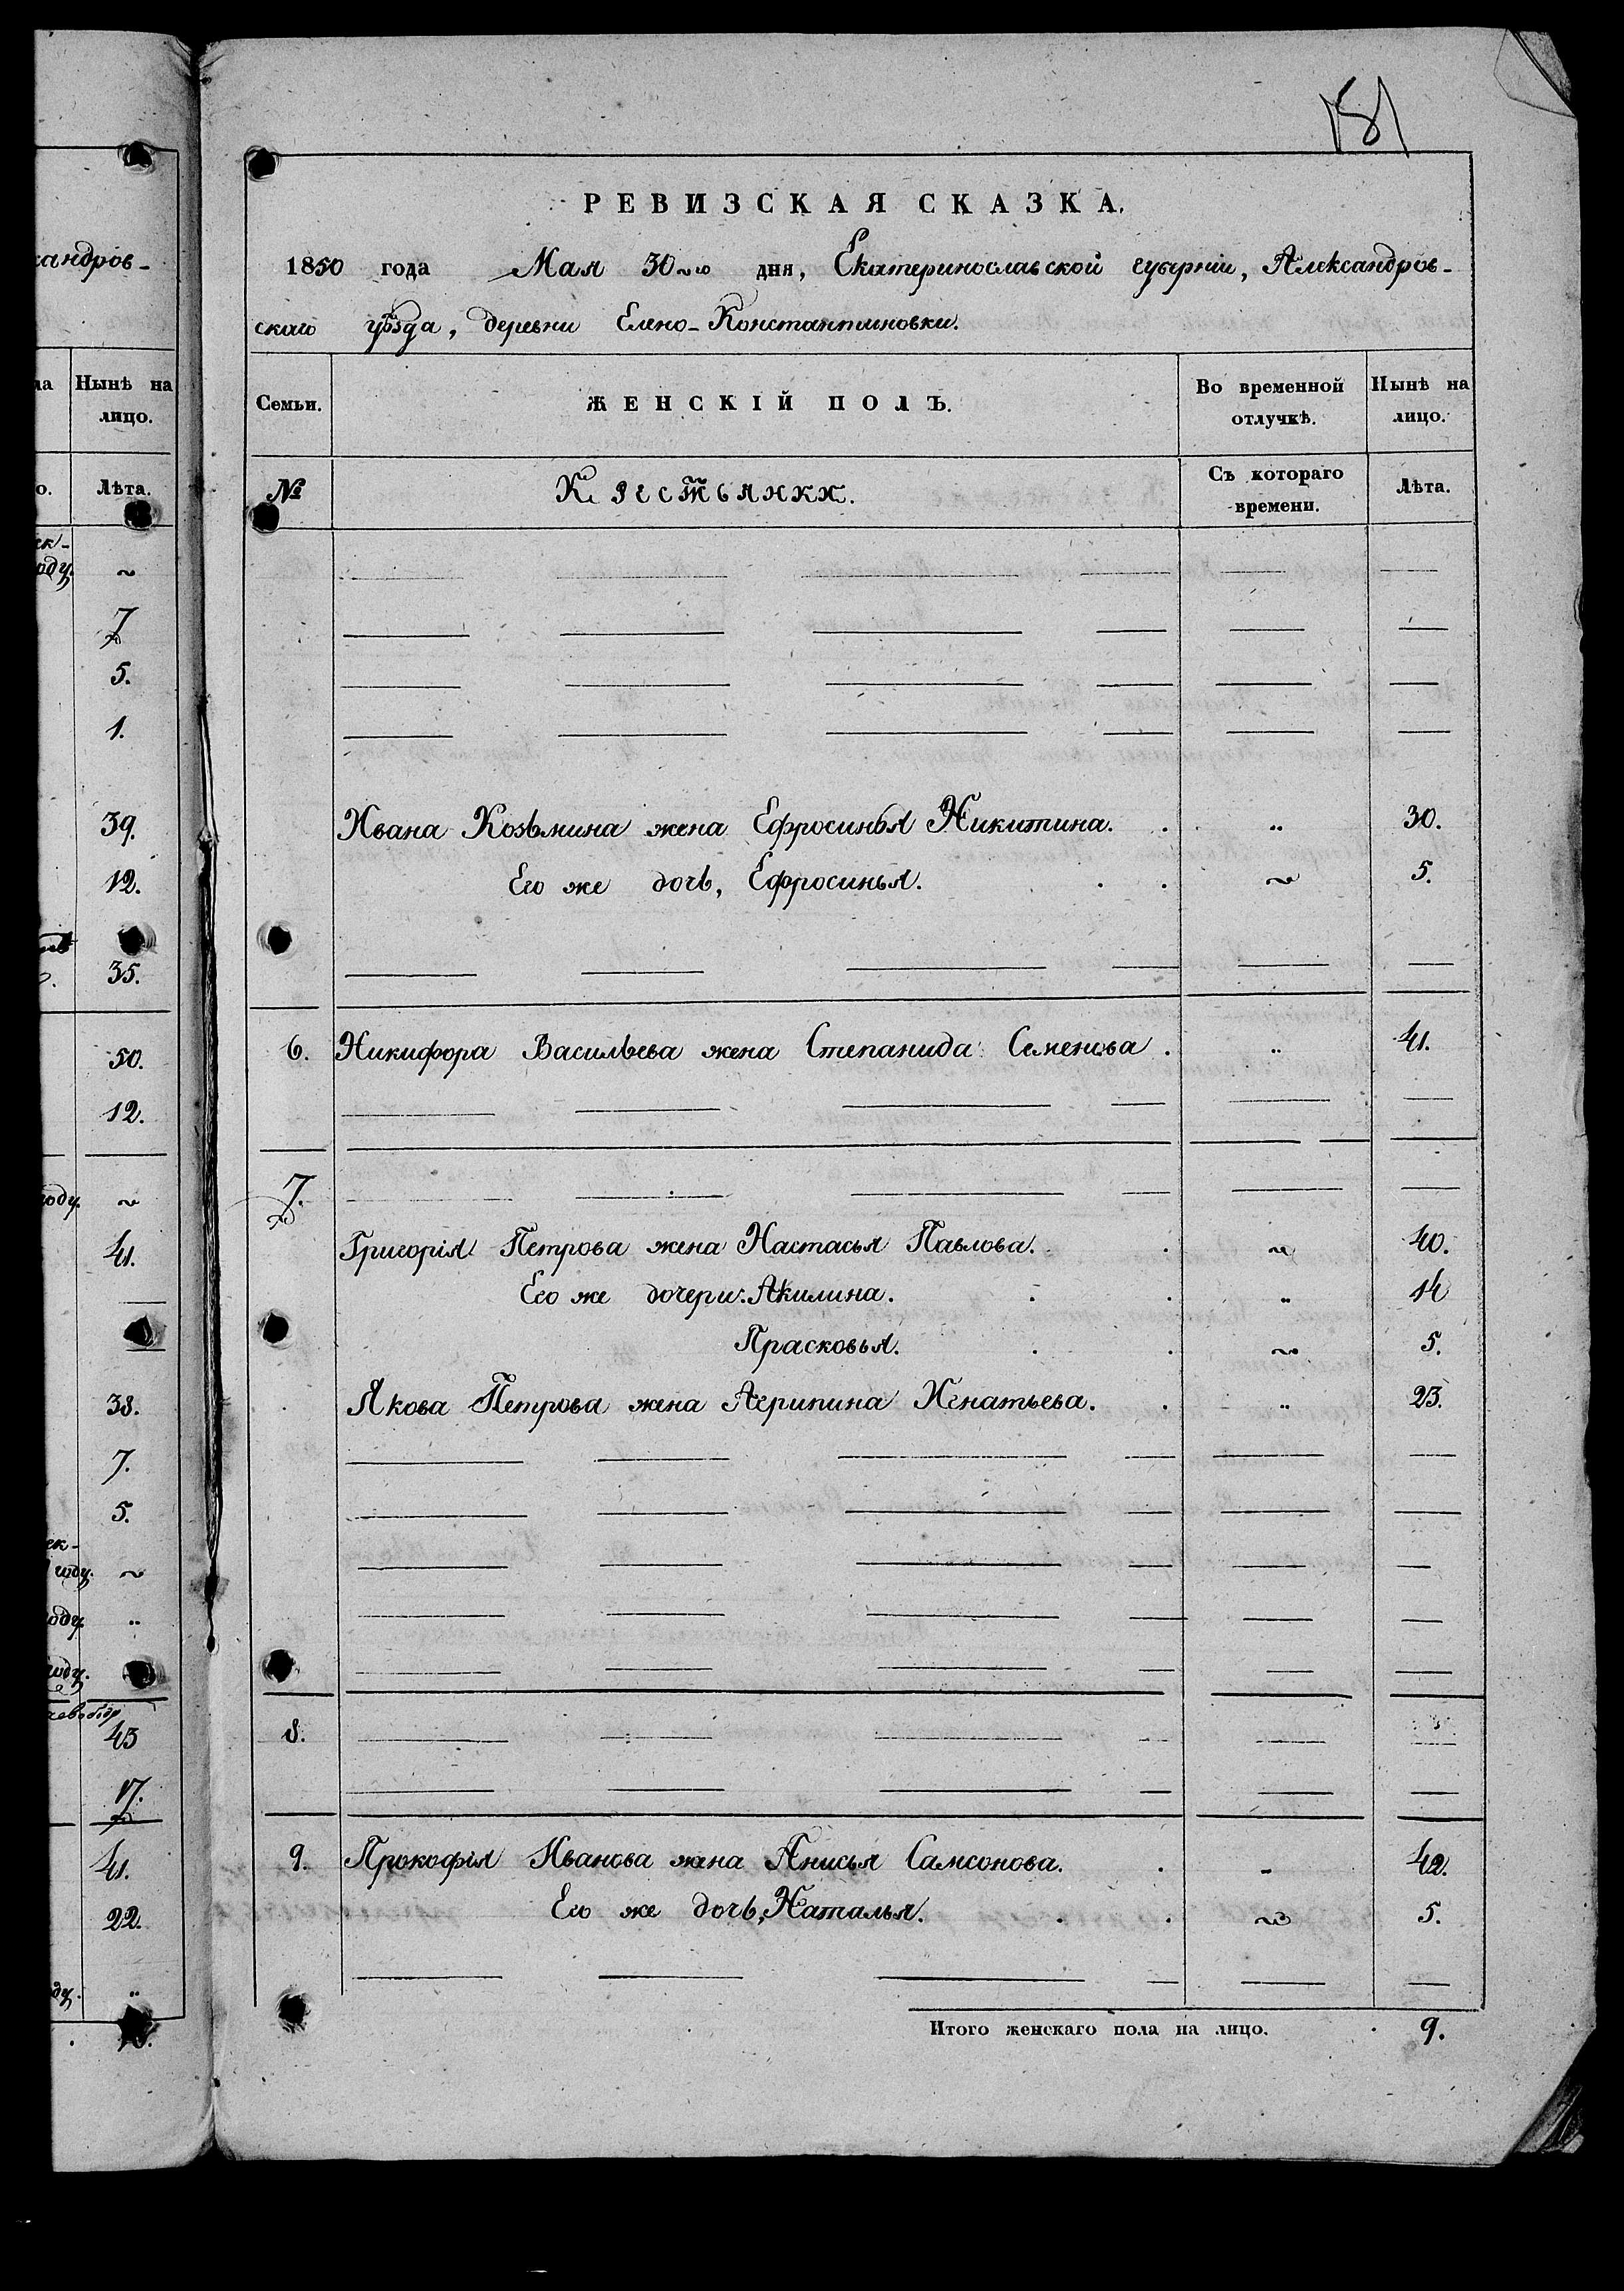 181
РЕВИЗСКАЯ СКАЗКА.
1850 года Мая 30го дня, Екатеринославской губерніи, Александров-
скаго уѣзда, деревни Елено-Константиновки.
андров-
Нынѣ на
лицо.
Лѣта.
Семьи.
ЖЕНСКІЙ ПОЛЪ.
Во временной
отлучкѣ.
Нынѣ на
лицо.
№
Крестьянки.
Съ котораго
времени.
Лѣта.
7
5.
1.
39.
12.
35.
50.
12.
41.
38.
7.
5.
43
17.
41.
22.
Ивана Козьмина жена Ефросинья Никитина. 30.
Его же дочь, Ефросинья. 5.
6. Никифора Васильева жена Степанида Семенова. 41.
7.
Григорія Петрова жена Настасья Павлова. 40.
Его же дочери: Акилина. 14
Прасковья. 5.
Якова Петрова жена Агрипина Игнатьева. 23.
8.
9. Прокофія Иванова жена Анисья Самсонова. 42.
Его же дочь, Наталья. 5.
Итого женскаго пола на лицо. 9.